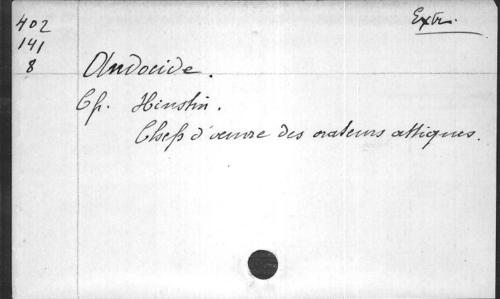 402
141
8
Extr.
Andocide.
Cf. Hinstin.
Chefs d'œuvre des orateurs attiques.